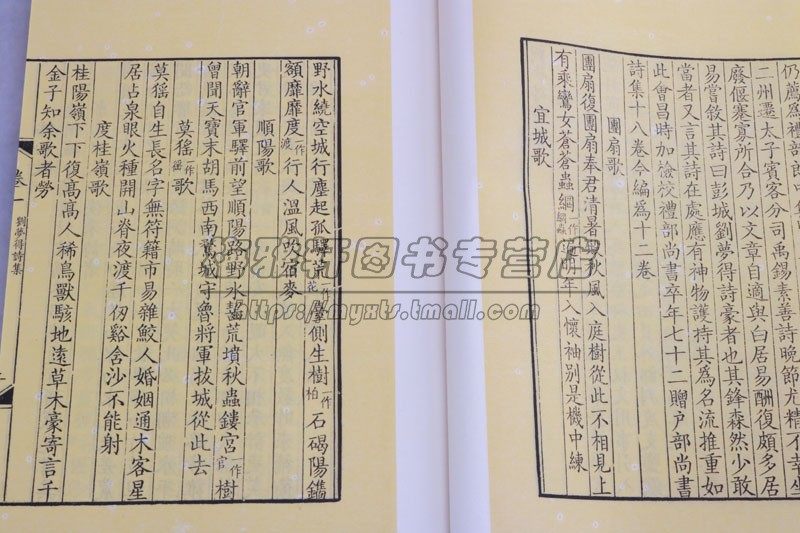 仍薦爲禮部郎中集
二州遷太子賓客分司禹錫素善詩晚節尤精不幸坐
廢偃蹇寡所合乃以文章自適與白居易酬復頗多居
易嘗敘其詩曰彭城劉夢得詩豪者也其鋒森然少敢
當者又言其詩在處應有神物護持其爲名流推重如
此會昌時加檢校禮部尚書卒年七十二贈户部尚書
詩集十八卷今編爲十二卷
團扇歌
團扇復團扇奉君清暑殿秋風入庭樹從此不相見上
有乘鸞女蒼蒼蟲網一作網蟲遍明年入懷袖別是機中練
宜城歌
野水繞空城行塵起孤驛荒一作花臺側生樹一作柏石碣陽鐫
額靡靡度一作渡行人溫風吹宿麥
順陽歌
朝辭官軍驛前望順陽路野水齧荒墳秋蟲鏤宮一作官樹
曾聞天寶末胡馬西南騖城守魯將軍拔城從此去
莫猺一作徭歌
莫猺自生長名字無符籍市易雜鮫人婚姻通木客星
居占泉眼火種開山脊夜渡千仞谿含沙不能射
度桂嶺歌
桂陽嶺下下復高高人稀鳥獸駭地遠草木豪寄言千
金子知余歌者勞
卷一 劉夢得詩集
雅轩图书专营店
https://myxts.tmall.com